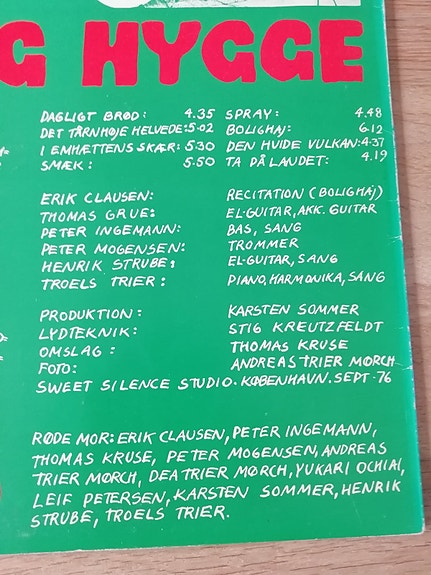 G HYGGE
DAGLIGT BRØD: 4.35 SPRAY: 4.48
DET TÅRNHØJE HELVEDE: 5.02 BOLIGHAJ: 6.12
I EMHÆTTENS SKÆR: 5.30 DEN HVIDE VULKAN: 4.37
SMÆK: 5.50 TA PÅ LANDET: 4.19
ERIK CLAUSEN: RECITATION (BOLIGHAJ)
THOMAS GRUE: EL-GUITAR, AKK. GUITAR
PETER INGEMANN: BAS, SANG
PETER MOGENSEN: TROMMER
HENRIK STRUBE: EL-GUITAR, SANG
TROELS TRIER: PIANO, HARMONIKA, SANG
PRODUKTION: KARSTEN SOMMER
LYDTEKNIK: STIG KREUTZFELDT
OMSLAG: THOMAS KRUSE
FOTO: ANDREAS TRIER MØRCH
SWEET SILENCE STUDIO. KØBENHAVN. SEPT-76
RØDE MOR: ERIK CLAUSEN, PETER INGEMANN,
THOMAS KRUSE, PETER MOGENSEN, ANDREAS
TRIER MØRCH, DEA TRIER MØRCH, YUKARI OCHIAI,
LEIF PETERSEN, KARSTEN SOMMER, HENRIK
STRUBE, TROELS TRIER.